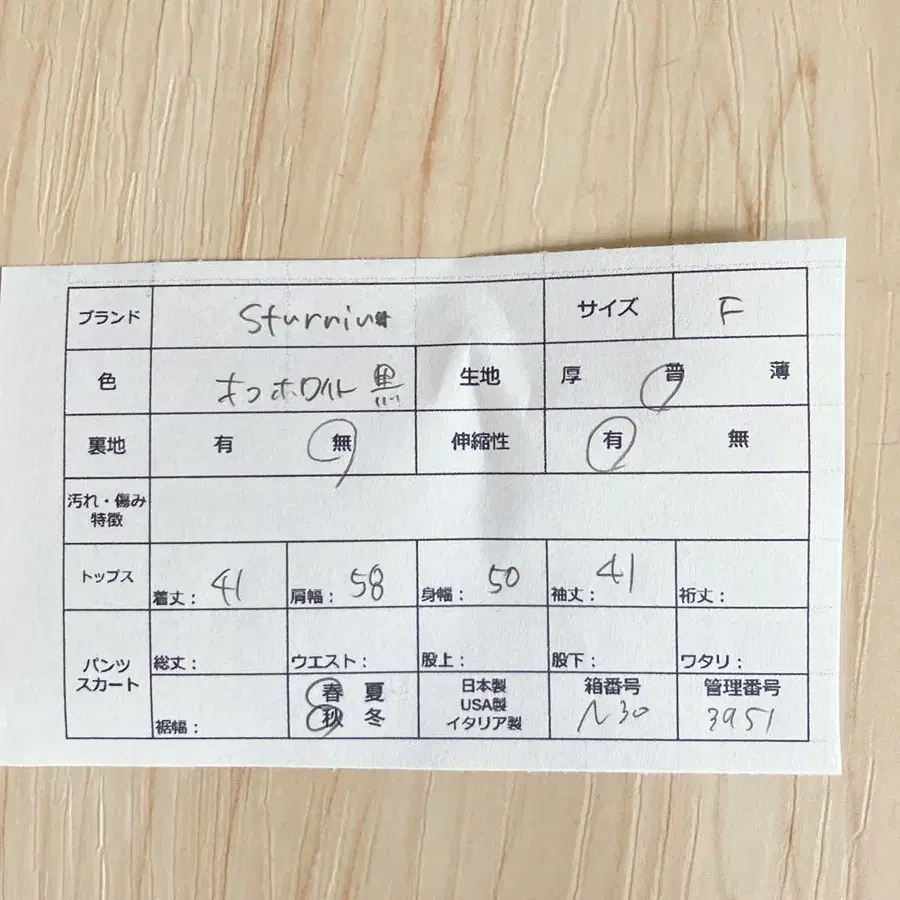 ブランド Sturniu サイズ F
色 オフホワイト 黒 生地 厚 普 薄
裏地 有 無 伸縮性 有 無
汚れ・傷み
特徴
トップス 着丈： 41 肩幅： 58 身幅： 50 袖丈： 41 裄丈：
パンツ
スカート
総丈： ウエスト： 股上： 股下： ワタリ：
裾幅：
春 夏
秋 冬
日本製
USA製
イタリア製
箱番号
N30
管理番号
3951